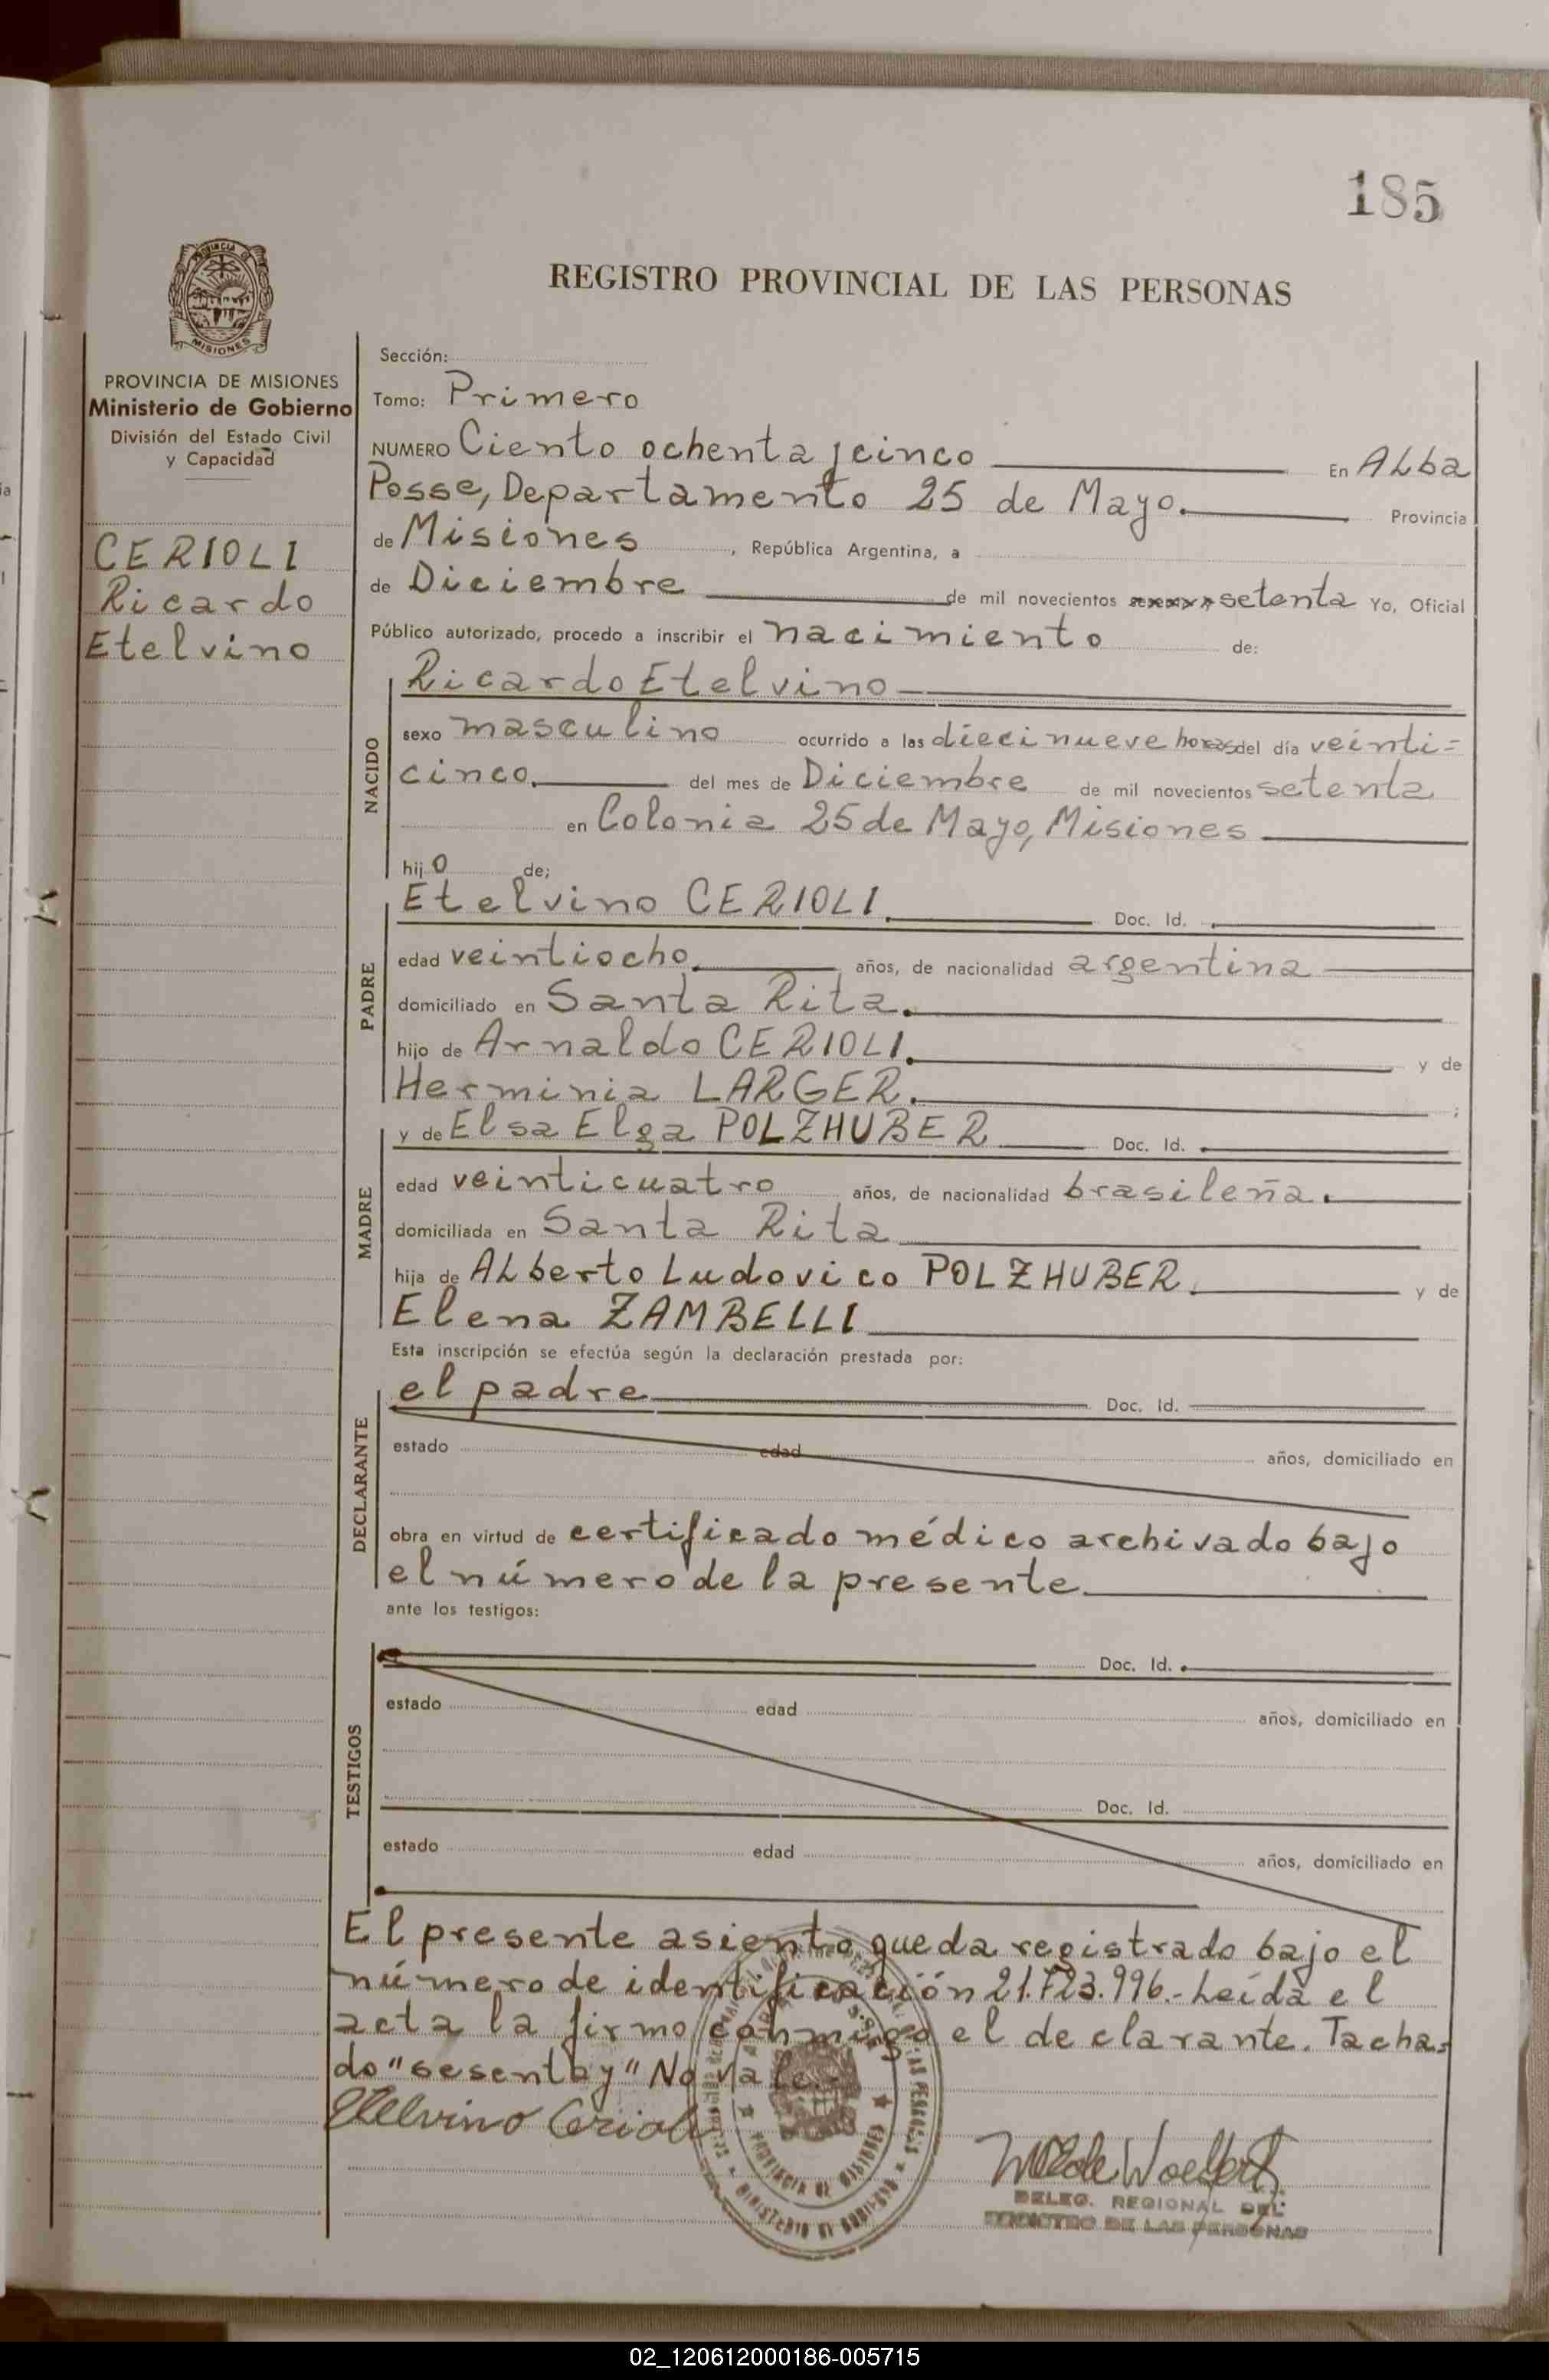 185
REGISTRO PROVINCIAL DE LAS PERSONAS
PROVINCIA DE MISIONES
Ministerio de Gobierno
División del Estado Civil
y Capacidad
CERIOLI
Ricardo
Etelvino
Sección:
Tomo: Primero
NUMERO Ciento ochenta y cinco En ALba
Posse, Departamento 25 de Mayo. Provincia
de Misiones, República Argentina, a
de Diciembre de mil novecientos setenta Yo, Oficial
Público autorizado, procedo a inscribir el nacimiento de:
NACIDO
Ricardo Etelvino
sexo masculino ocurrido a las diecinueve horas del día veinti=
cinco. del mes de Diciembre de mil novecientos setenta
en Colonia 25 de Mayo, Misiones
hijo de;
PADRE
Etelvino CERIOLI. Doc. Id.
edad veintiocho. años, de nacionalidad argentina
domiciliado en Santa Rita.
hijo de Arnaldo CERIOLI. y de
Herminia LARGER. ;
MADRE
y de Elsa Elga POLZHUBER Doc. Id.
edad veinticuatro años, de nacionalidad brasileña.
domiciliada en Santa Rita
hija de ALberto Ludovico POLZHUBER. y de
Elena ZAMBELLI
Esta inscripción se efectúa según la declaración prestada por:
DECLARANTE
el padre Doc. Id.
estado edad años, domiciliado en
obra en virtud de certificado médico archivado bajo
el número de la presente
ante los testigos:
TESTIGOS
Doc. Id.
estado edad años, domiciliado en
Doc. Id.
estado edad años, domiciliado en
El presente asiento queda registrado bajo el
número de identificación 21.723.996.- Leída el
acta la firmo conmigo el declarante. Tacha=
do "sesentay" No vale.-
Etelvino Cerioli
DELEG. REGIONAL DEL
REGISTRO DE LAS PERSONAS
PROVINCIA DE MISIONES
MINISTERIO DE GOBIERNO
02_120612000186-005715